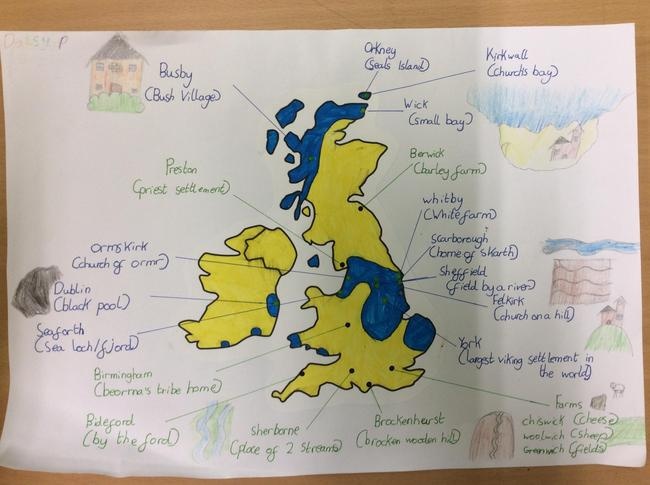 Daisy P
Orkney
(seals Island)
Kirkwall
(church's bay)
Busby
(Bush Village)
Wick
(small bay)
Preston
(priest settlement)
Berwick
(barley farm)
whitby
(White farm)
Ormskirk
(church of ormr)
Scarborough
(home of skarth)
Dublin
(black pool)
Sheffield
(field by a river)
Felkirk
(church on a hill)
Seaforth
(Sea loch/fjord)
York
(largest viking settlement in
the world)
Birmingham
(beorma's tribe home)
Bideford
(by the ford)
Sherborne
(place of 2 streams)
Brockenhurst
(brocken wooden hill)
Farms
chiswick (cheese)
woolwich (sheep)
Greenwich (fields)